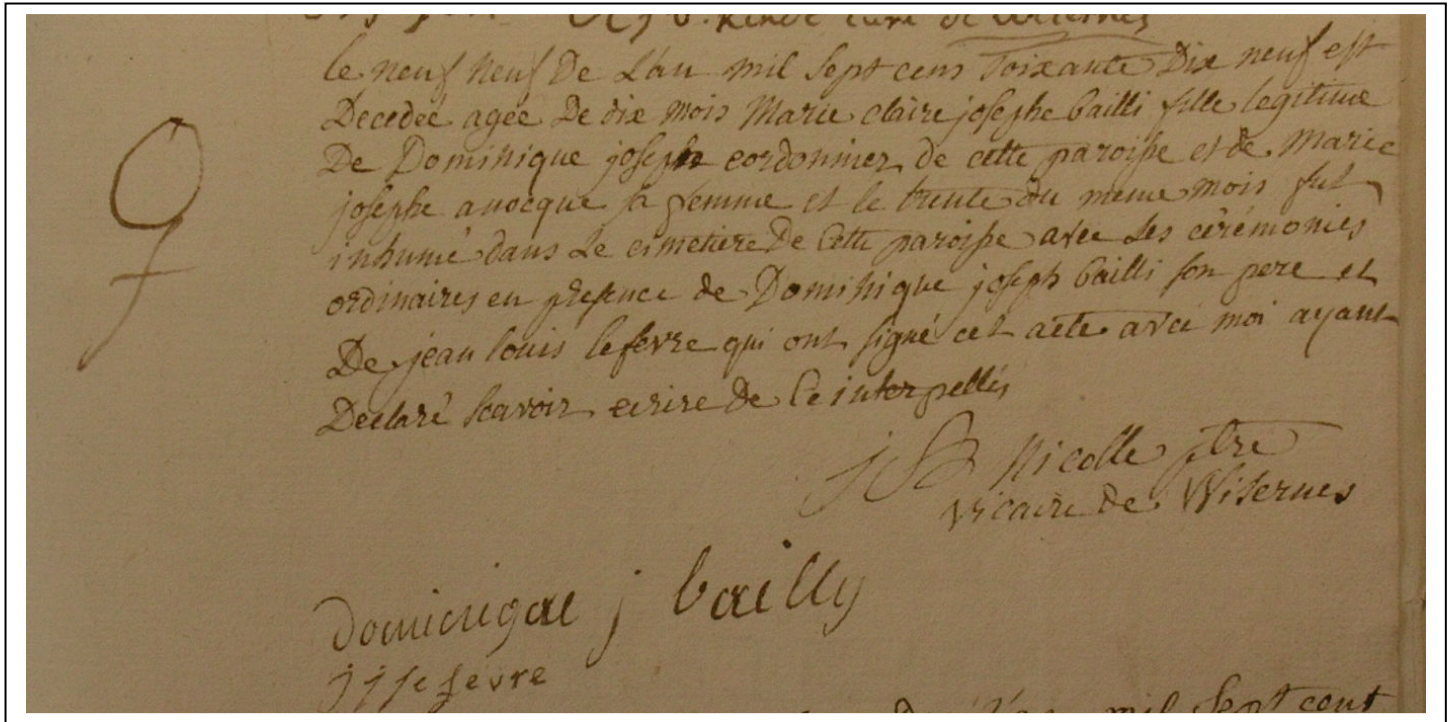 curé de Wisernes
le neuf neuf De L'an mil sept cens soixante Dix neuf est
Decedée agée De dix mois Marie claire josephe bailli fille legitime
De Dominique joseph cordonnier de cette paroisse et de Marie
josephe anocque sa femme et le trente du meme mois fut
inhumé dans Le cimetiere De Cette paroisse avec Les cérémonies
ordinaires en presence de Dominique joseph bailli son pere et
De jean louis lefevre qui ont signé cet acte avec moi ayant
Declaré scavoir ecrire de Ce interpellés
JB Nicolle ptre
vicaire de Wisernes
Dominique j bailly
jj lefevre
De l'an mil Sept cent